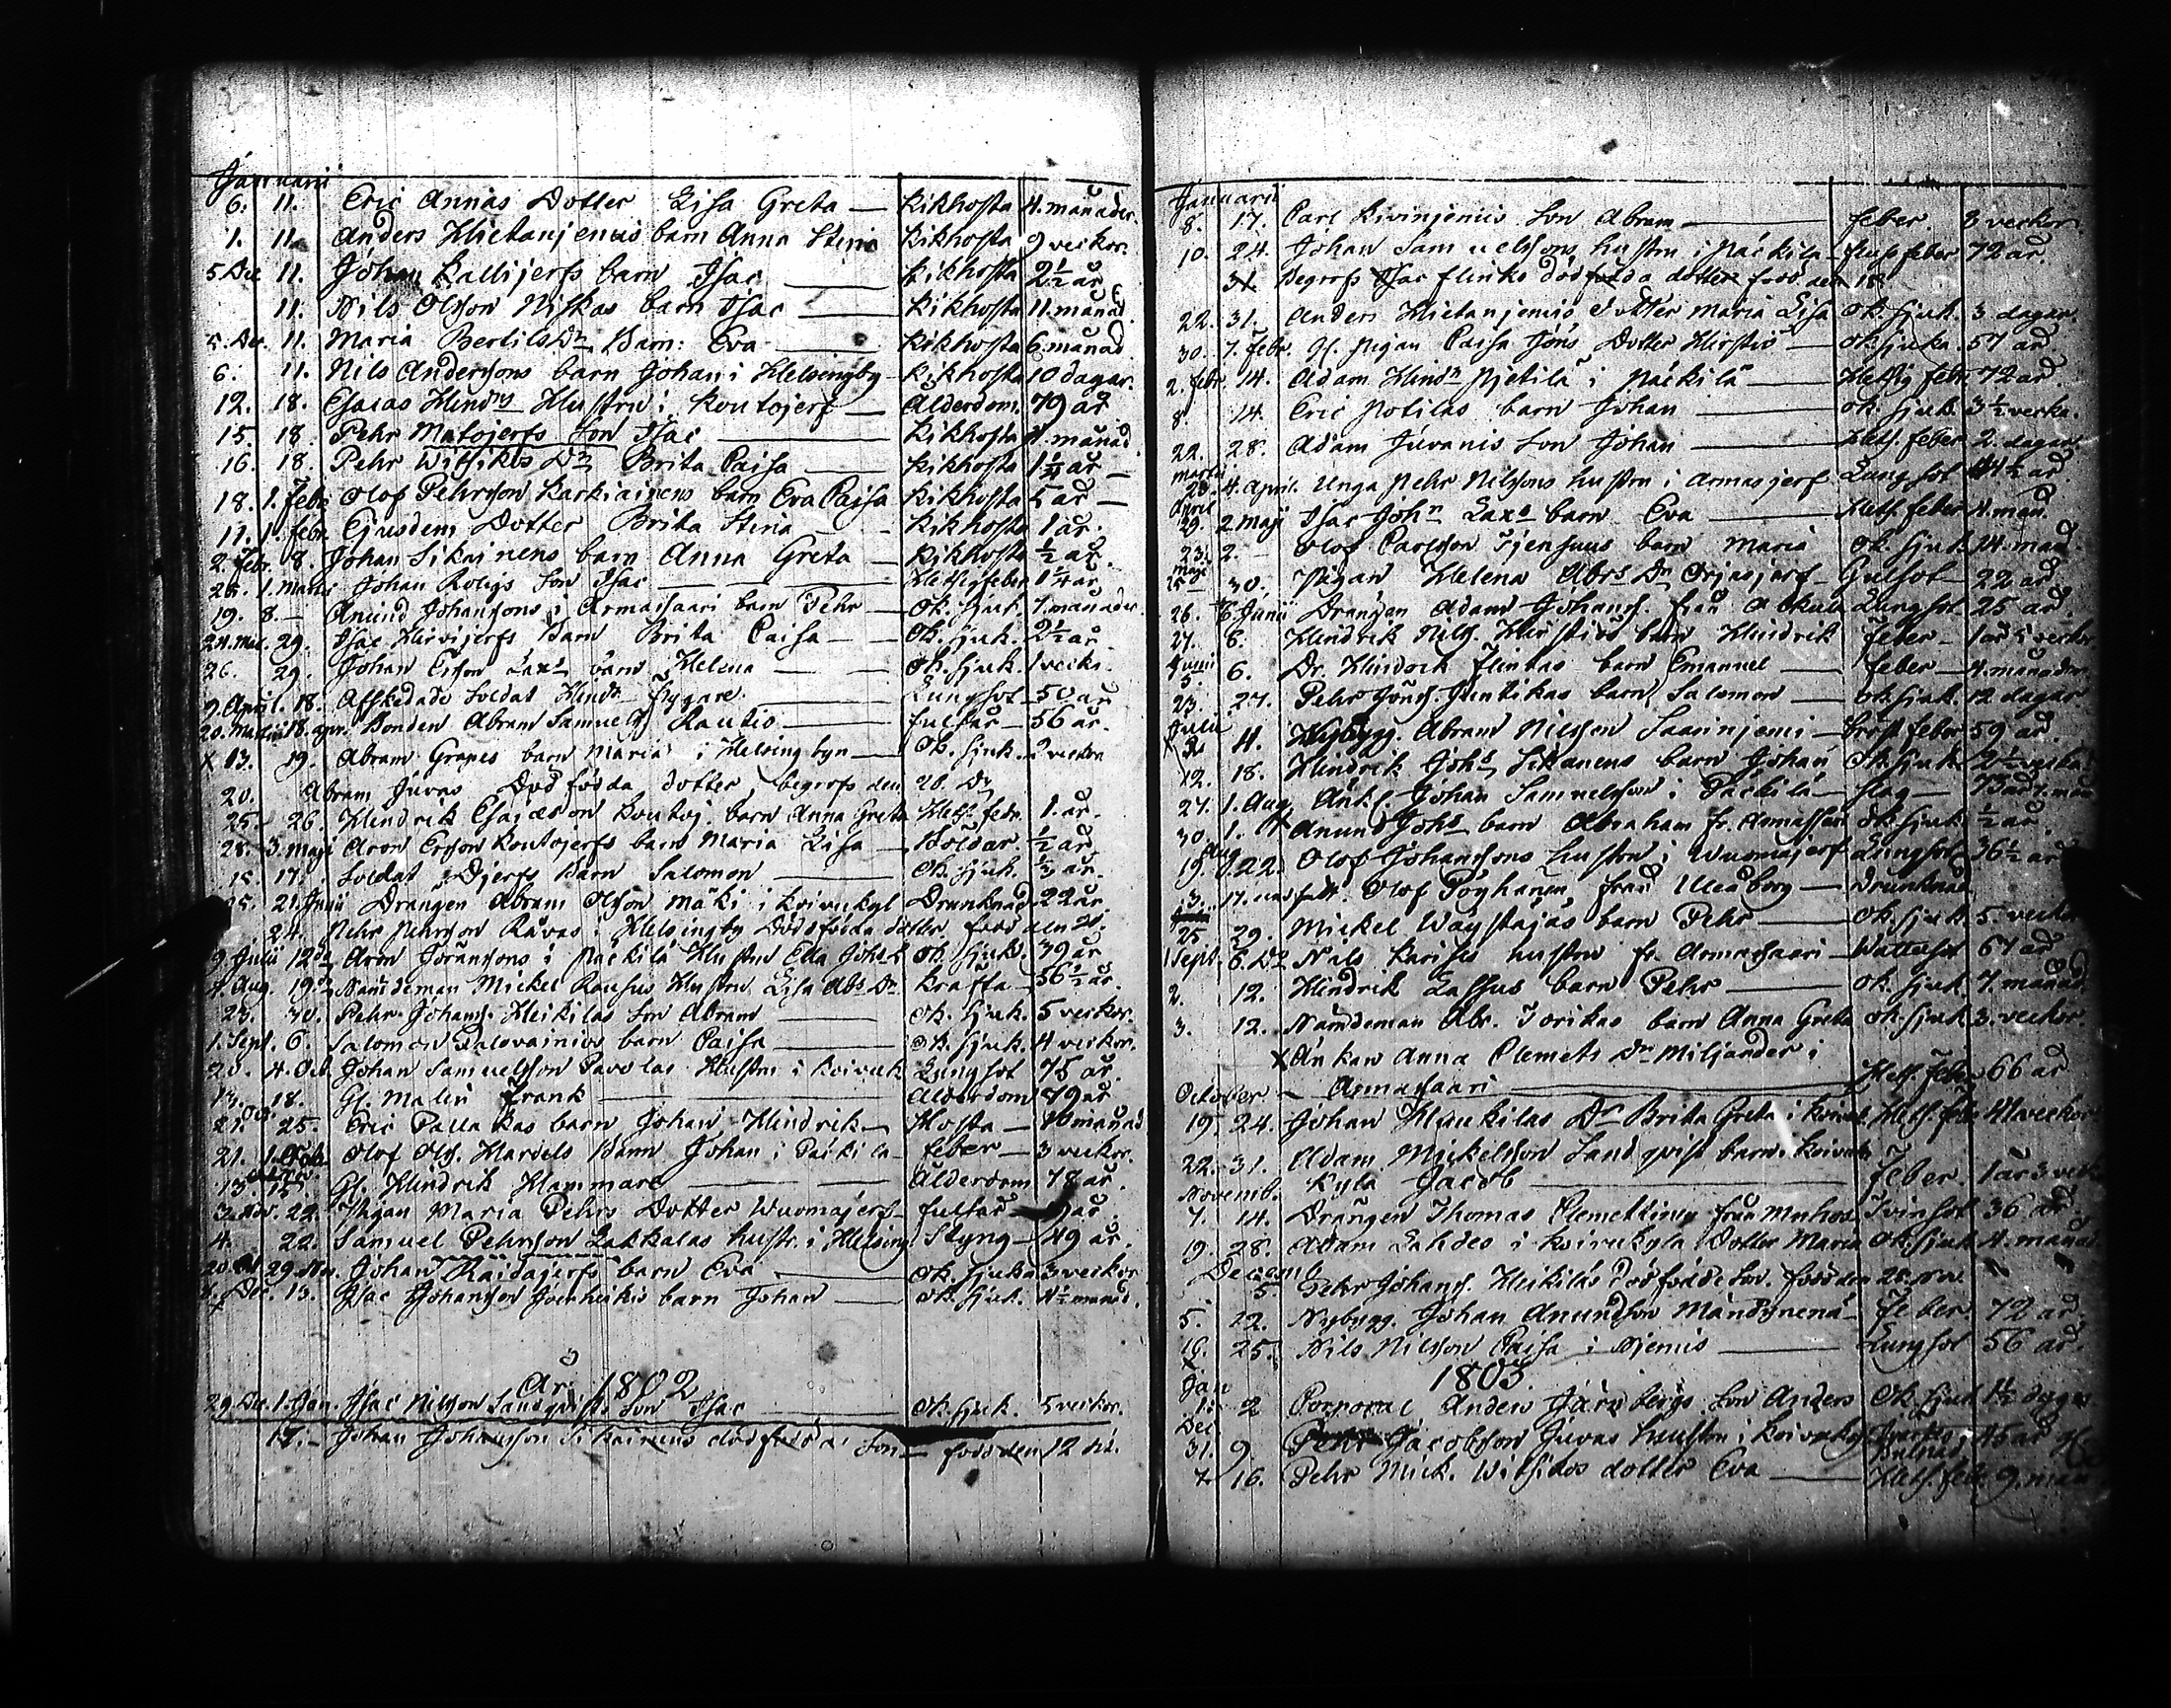 Januarii
6. 11. Eric Annas Dotter Lisa Greta — Kikhosta 4. månader.
1. 11. Anders Hietanjemis barn Anna Stina Kikhosta 9 veckor.
5 Dec 11. Johan Kallijerfs barn Isac — Kikhosta 2½ år
11. Nils Olsson Niskas barn Isac — Kikhosta 11. månad
5. Dec. 11. Maria Bertils Dr Barn: Eva — Kikhosta 6 månad
6. 11. Nils Anderssons barn Johan i Helsingby Kikhosta 10 dagar.
12. 18. Esaias Hindrs Hustru i Koutojerf — Ålderdom. 79 år
15. 18. Pehr Matojerfs Son Isac — Kikhosta 4. månad
16. 18. Pehr Witsikos Dr Brita Caisa — Kikhosta 1 år —
18. 1. Febr Olof Pehrsson Karkiainens barn Eva Caisa Kikhosta 5 år —
11. 1. febr. Ejusdem Dotter Brita Stina — Kikhosta 1 år.
2. Febr. 8. Johan Sikainens barn Anna Greta — Kikhosta ½ år.
1. Martii Johan Son Isac — Hetsigfeber
19. 8. — Anund Johanssons i Armassaari barn Pehr — Ok. sjuk. 7. månader
29. Isac Hirvijerfs Barn Brita Caisa — Ok. sjuk. 2½ år
26. 29. Johan Ersson Laxs barn Helena — Ok. sjuk. 1 vecka.
9 April. 18. Afskedade Soldat Hindr Flygare. — Lungsot — 50 år
20. Martii 18. apr. Bonden Abram Samuels. Rautio — fulsår — 56 år.
x 13. 19. Abram Grapes barn Maria i Helsingbyn — Ok. sjuk. 2 veckor
20. Abram Juvas Dödfödda dotter, begrofs den 20. Ds
25. 26. Hindrik Esaiæson Koutoj. barn Anna Greta Hets. febr. 1. år.
28. 3. Maji Aron Ersson Koutojerfs barn Maria Lisa — Bölder. ½ år
15. 17. Soldat Djerfs Barn Salomon — Ok. sjuk.
25. 21. Junii Drängen Abram Olsson Mäki i Koivukyl Drunknad 22 år.
24. Pehr Pehrsson Råvas i Helsingby Dödfödda dotter, född den 21.
9. Julii 12 Aron Göranssons i Päckilä Hustru Ella Ok. sjukd. 39 år
4. Aug. 19. Nämdeman Mickel Hustru Lisa Abs Dr. Kräfta 56½ år.
23. 30. Pehr Johans. Heikilas Son Abram — Ok. sjuk. 5 veckor.
1. Sept. 6. Salomon Palovainios barn Caisa — Ok. sjuk. 4 veckor.
20. 4. Oct. Johan Samuelsson Pavolas Hustru i Koivuk Lungsot 75 år.
13. 18. Gl. Malin Frank — Ålderdom 79 år
21. Oct. 25. Eric Pallakas barn Johan Hindrik — Hosta — 10 månad
21. Olof Ols. Hardels Barn Johan i Päckila — feber — 3 veckor.
13. 15 Gl. Hindrik Hammare — Ålderdom 78 år.
3. Nov. 22. Pigan Maria Pehrs Dotter Wuomajerf — fulsår
4. 22. Samuel Pehrsson Lakkalas hustr. i Helsing. Styng — 49 år.
20. Oct 29. Nov. Johan Raidajerfs barn Eva — Ok. sjuka 3 veckor
8. Dec. 13. Isac Johansson Joenheikis barn Johan — Ok. sjuk. 4½ månad.
År. 1802
29. Dec. 1. Jan. Isac Nilsson Landqvists Son Isac — Ok. sjuk. 5 veckor.
17. — Johan Johansson Sikainens dödfödda Son — född den 12 hs.
Januarii
8. 17. Carl Kivinjemis Son Abram — feber. 3 veckor
10. 24. Johan Samuelssons hustru i Päckila — feber 72 år.
31. Begrofs Isac Flinks dödfödda dotter född den 18
22. 31. Anders Hietanjemis Dotter Maria Lisa Ok. sjuk. 3 dagar.
30. 7. Febr. Gl. Pigan Caisa Jöns Dotter Hirstiö — Ok. sjuka. 57 år
2. Febr. 14. Adam Hindr Pjetilä i Päckilä — Hetsig febr. 72 år
8. 14. Eric Potilas barn Johan — ok. sjuk. 3½ vecka.
22. 28. Adam Juvanis Son Johan — Hets. feber 2. dagar
Martii 28. 4. April. Unga Pehr Nilssons hustru i Armasjerf Lungsot 44½ år
April 29. 2 Maji Isac Johs Laxs barn Eva — Hets. feber 4. mån.
23. 2. — Olof Carlsson Tjensuus barn Maria Ok. sjuk 14. mån.
Maji 25 30. Pigan Helena Abrs Dr Orjasjerf — Gulsot — 22 år
26. 6. Junii Drängen Adam Johans. från Alkula Lungsot 25 år.
27. 6. Hindrik Nils. Hirstiös barn Hindrik feber — 1 år 5 veckor
Junii 5 6. Dr. Hindrik Flinkas barn Emanuel — feber — 4. månader
23. 27. Pehr Jöns. Juntikas barn Salomon — Ok. sjuk. 12 dagar
Julii 4. Nybygg. Abram Nilsson Saarinjemi — bröst feber 59 år.
12. 18. Hindrik Johs Sikanens barn Johan Ok. sjuk 2½ vecka
27. 1. Aug. Änkl. Johan Samuelsson i Päckilä — slag — 73 år 7. mån
30. 1. Anund Johs barn Abraham fr. Armassaari Ok. sjuk ½ år.
Aug 19. 22. Olof Johanssons hustru i Wuomajerf Lungsot 36½ år
3. 17. Olof Pöyhänen från Uleåborg — Drunknad
25 29. Mickel Wäystäjäs barn Pehr — Ok. sjuk 5. veckor
1 Sept. 6. Ds Nils Karises hustru fr. Armassaari — Wattusot 67 år
2. 12. Hindrik Lassus barn Pehr — Ok. sjuk 7. månad
3. 12. Nämdeman Abr. Torikas barn Anna Greta Ok. sjuk 3. veckor.
x Änkan Anna Clemets Dr Miljander i
October — Armassaari — Hets. feber 66 år
19. 24. Johan Haukilas Dr Brita Greta i Hets. feb.
22. 31. Adam Mickelsson Landqvist barn i Koivu
Novemb. Kyla Jacob — feber. 1 år 3 veck
7. 14. Drängen Thomas Clemettinen från Muhos Tvinsot 36 år.
19. 28. Adam Lahdes i Koivukyla Dotter Maria Ok. sjuk 4. månad
Decemb 5. Pehr Johans. Heikiläs dödfödde Son. född den 28. Nov.
5. 12. Nybygg. Johan Anundson feber. 72 år
19. 25. Nils Nilsson Caisa i Njemis — Lungsot 56 år.
1803.
Jan 1. 2 Corporal Anders Järnbergs Son Anders Ok. sjuk 1½ dagar
Dec. 31. 9 Jacobsson Juvas hustru i Koivukyl
7 16. Pehr Mick. Witsikos dotter Eva — Hets. feb. 9. mån